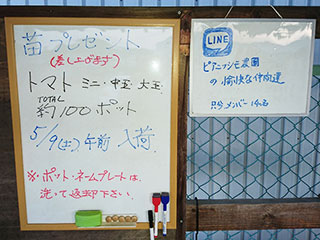 苗プレゼント
(差し上げます)
トマト ミニ・中玉・大玉
TOTAL
約100ポット
5/9(土)午前 入荷
※ポット・ネームプレートは
洗って返却下さい。
LINE
ピアニッシモ農園
の愉快な仲間達
メンバー